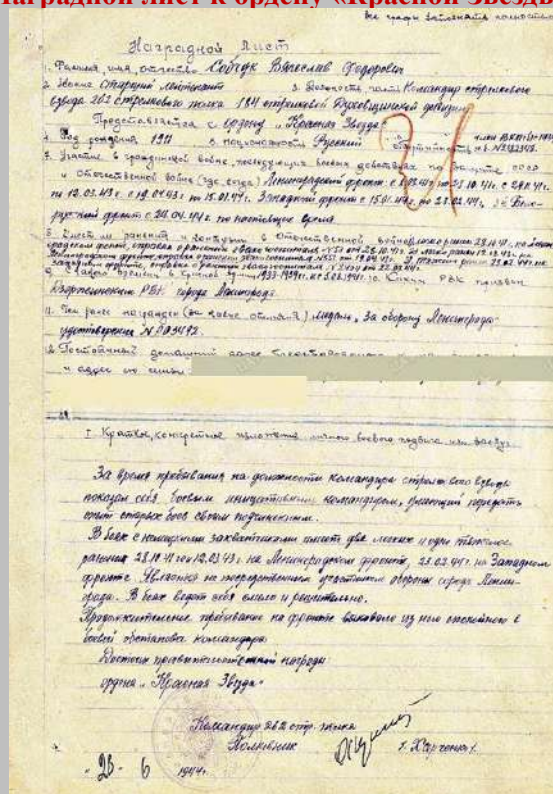 Наградной лист к ордену «Красной Звезды
все графы заполнять полностью
Наградной Лист
1. Фамилия, имя, отчество Собчук Вячеслав Федорович
2. Звание Старший лейтенант 3. Должность, часть Командир стрелкового
взвода 262 стрелкового полка 184 стрелковой Духовщинской дивизии
Представляется к ордену „Красная Звезда"
4. Год рождения 1911 5. национальность Русский
31
7. Участие в гражданской войне, последующих боевых действиях по защите СССР
и Отечественной войне (где, когда) Ленинградский фронт: с по 28.10.41г. с
по 12.03.43г. с 19.04.43г. по 15.01.44г. Западный фронт с 15.01.44г. по 23.02.44г. 3й Бело-
русский фронт с 24.04.44г. по настоящее время
8. Имеет ли ранения и контузии в Отечественной войне легко ранен 28.10.41г. на Ленин-
градском фронте, справка о ранении
9. С какого времени в Красной Армии 1933-1934г. 10. Каким РВК призван
Дзержинским РВК города Ленинграда
11. Чем ранее награжден (за какие отличия) медаль „За оборону Ленинграда"
удостоверение №
12. Постоянный домашний адрес
и адрес его семьи
I Краткое, конкретное изложение личного боевого подвига или заслуг
За время пребывания на должности командира стрелкового взвода
показал себя боевым инициативным командиром, умеющий передать
опыт старых боев своим подчиненным.
В боях с немецкими захватчиками имеет два легких и одно тяжелое
ранения 28.10.41г и 12.03.43г. на Ленинградском фронте, 23.02.44г. на Западном
фронте. Является непосредственным участником обороны города Ленин-
града. В боях ведет себя смело и решительно.
Продолжительное пребывание на фронте выковало из него спокойного в
боевой обстановке командира
Достоин правительственной награды
ордена „Красная Звезда"
Командир 262 стр. полка
Полковник /. Харченко /.
„23" 6 1944г.